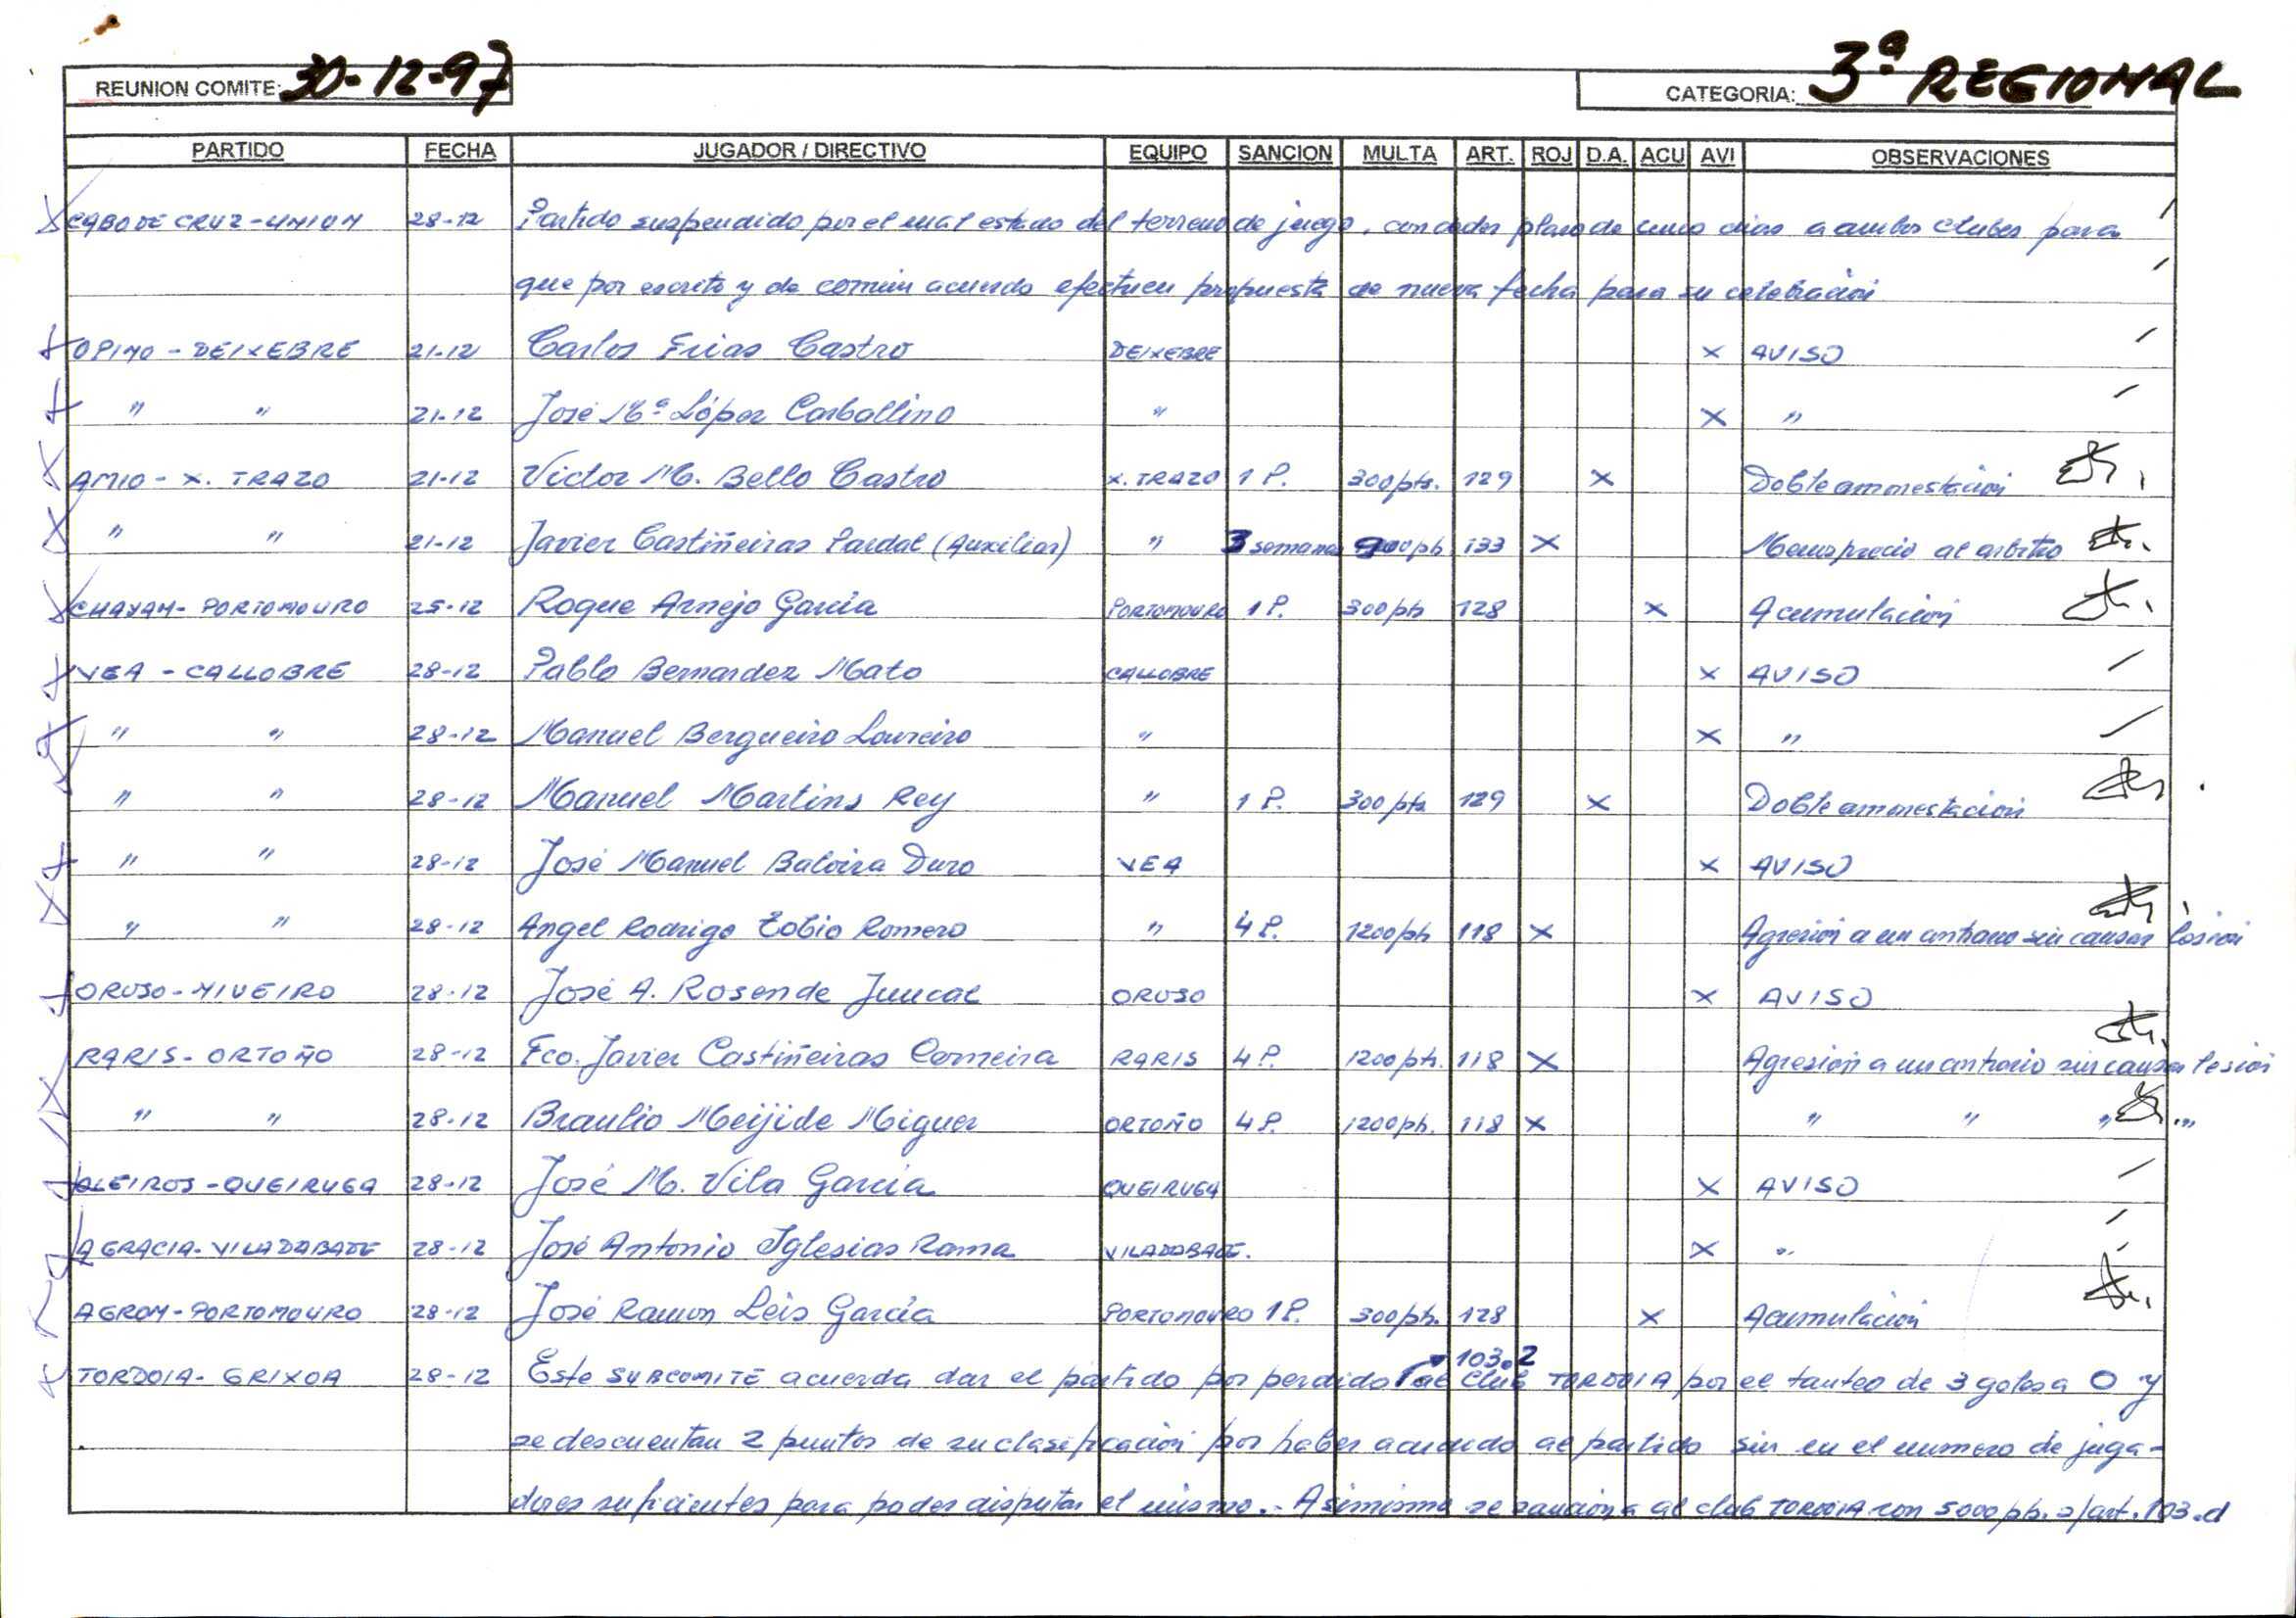 REUNION COMITE: 30-12-97 CATEGORIA: 3ª REGIONAL
PARTIDO FECHA JUGADOR / DIRECTIVO EQUIPO SANCION MULTA ART. ROJ D.A. ACU AVI OBSERVACIONES
CABO DE CRUZ-UNION 28-12 Partido suspendido por el mal estado del terreno de juego, conceder plazo de cinco dias a ambos clubes para
que por escrito y de común acuerdo efectuen propuesta de nueva fecha para su celebración
OPINO - DEIXEBRE 21-12 Carlos Frias Castro DEIXEBRE X AVISO
" " 21-12 José Mª López Carballino " X "
AMIO - X. TRAZO 21-12 Victor M. Bello Castro X. TRAZO 1 P. 300 pts. 129 X Doble amonestación
" " 21-12 Javier Castiñeiras Pardal (Auxiliar) " 3 semanas 900 pts 133 X Menosprecio al arbitro
CHAYAN- PORTOMOURO 25-12 Roque Arnejo García PORTOMOURO 1 P. 300 pts 128 X Acumulación
VEA - CALLOBRE 28-12 Pablo Bernardez Mato CALLOBRE X AVISO
" " 28-12 Manuel Bergueiro Loureiro " X "
" " 28-12 Manuel Martins Rey " 1 P. 300 pts 129 X Doble amonestación
" " 28-12 José Manuel Baloira Duro VEA X AVISO
" " 28-12 Angel Rodrigo Tobio Romero " 4 P. 1200 pts 118 X Agresión a un contrario sin causar lesión
OROSO-NIVEIRO 28-12 José A. Rosende Juncal OROSO X AVISO
RARIS- ORTOÑO 28-12 Fco. Javier Castiñeiras Corneira RARIS 4 P. 1200 pts. 118 X Agresión a un contrario sin causar lesión
" " 28-12 Braulio Meijide Miguez ORTOÑO 4 P. 1200 pts. 118 X " " " "
OLEIROS-QUEIRUGA 28-12 José M. Vila García QUEIRUGA X AVISO
AGRACIA-VILADABADE 28-12 José Antonio Iglesias Rama VILADABADE. X "
AGRON-PORTOMOURO 28-12 José Ramon Leis García PORTOMOURO 1 P. 300 pts. 128 X Acumulación
103.2
TORDOIA- GRIXOA 28-12 Este SUBCOMITÉ acuerda dar el partido por perdido al Club TORDOIA por el tanteo de 3 goles a 0 y
se descuentan 2 puntos de su clasificación por haber acudido al partido sin en el numero de juga-
dores suficientes para poder disputar el mismo.- Asimismo se sanciona al club TORDOIA con 5000 pts. s/art. 103.d